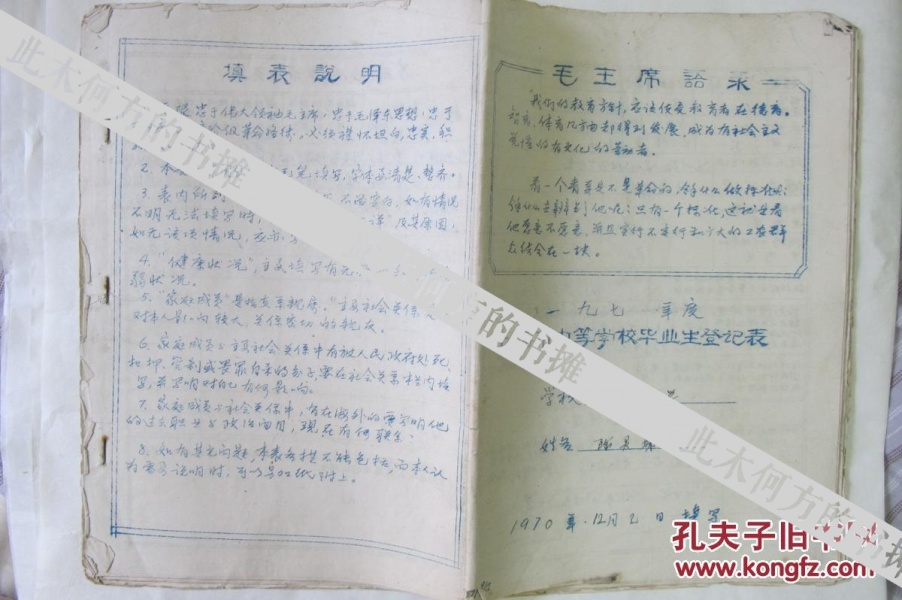 填表說明
忠于伟大领袖毛主席,忠于毛泽东思想,忠于
必须襟怀坦白,忠实,积
2. 本 笔填写,字体要清楚、整齐。
3. 表内所列 不留空白,如有情况
不明无法填写时, 及其原因,
如无该项情况,应亦
4. "健康状况",主要填写有无
弱状况。
5. "家庭成员"是指直系亲属。"主要社会关系"
对本人影响较大、关系密切的亲友。
6. 家庭成员与主要社会关系中有被人民政府处死、
扣押、管制或畏罪自杀的分子,要在社会关系栏内填
写,并写明对自己有何影响。
7. 家庭成员与社会关系中,有在海外的要写明他
的过去职业与政治面目,现在有何联系。
8. 如有其它问题,本表各栏不能包括,而本人认
为需要说明时,可另加纸附上。
毛主席語录
我们的教育方针,应该使受教育者在德育、
智育、体育几方面都得到发展,成为有社会主义
觉悟的有文化的劳动者。
看一个青年是不是革命的,拿什么做标准呢?
拿什么去辨别他呢?只有一个标准,这就是看
他愿意不愿意,并且实行不实行和广大的工农群
众结合在一块。
一九七 年度
中等学校毕业生登记表
学校
姓名 陈
1970年12月 日填写
此木何方的书摊
此木何方的书摊
孔夫子旧书网
www.kongfz.com